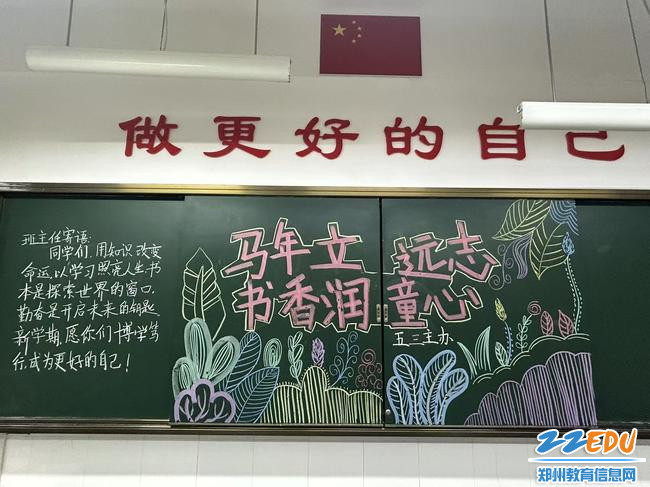 做更好的自己
班主任寄语:
同学们,用知识改变
命运,以学习照亮人生.书
本是探索世界的窗口,
勤奋是开启未来的钥匙.
新学期,愿你们博学笃
行,成为更好的自己!
马年立远志
书香润童心
五三主办
ZZEDU
郑州教育信息网